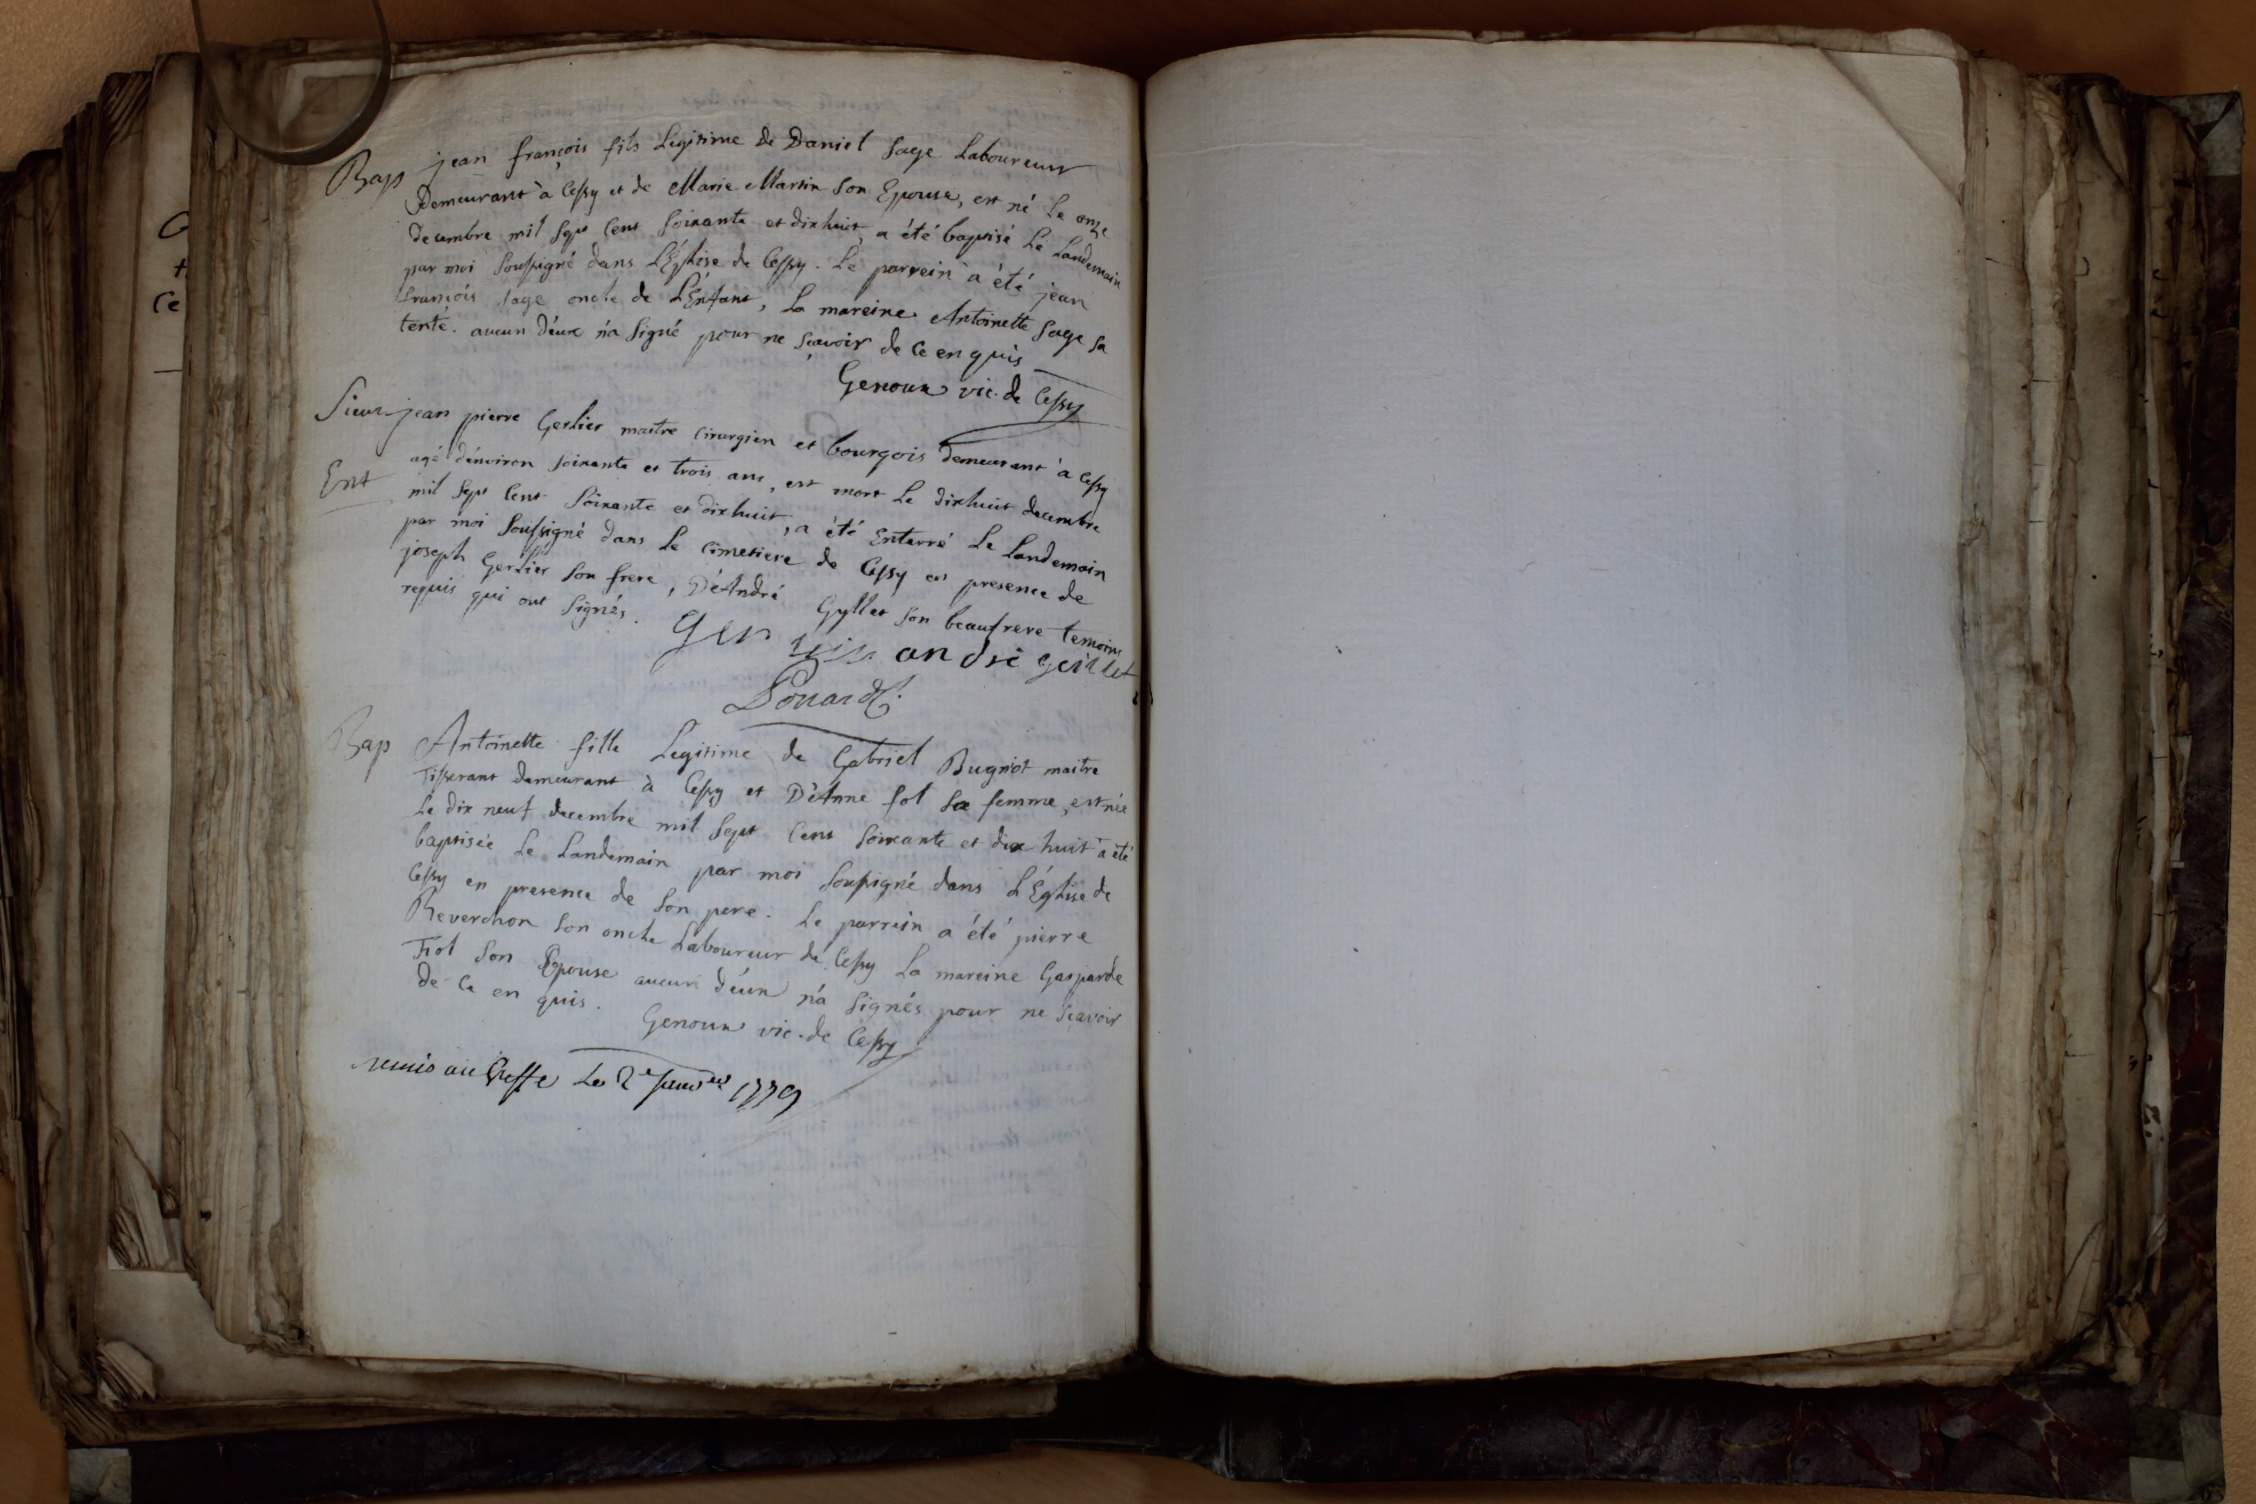 Bap jean françois fils Legitime de Daniel Sage Laboureur
demeurant à Cessy et de Marie Martin son Epouse, est né le onze
decembre mil sept cent soixante et dixhuit, a été baptisé Le Landemain
par moi soussigné dans L'Église de Cessy. Le parrein a été jean
françois sage oncle de L'Enfant, La mareine Antoinette sage sa
tente. aucun d'eux n'a signé pour ne sçavoir de ce enquis
Genoux vic. de Cessy
Sieur jean pierre Gerlier maitre cirurgien et bourgois demeurant à Cessy
Ent agé d'environ soixante et trois ans, est mort Le dixhuit decembre
mil sept cent soixante et dixhuit, a été Enterré Le Landemain
par moi soussigné dans Le cimetiere de Cessy en presence de
joseph Gerlier son frere, D'André Gyllet son beaufrere temoins
requis qui ont signés.
Gerlier andré geillet
Bap Antoinette fille Legitime de Gabriel Bugniot maitre
Tisserant demeurant à Cessy et D'Anne fol sa femme, est née
Le dix neuf decembre mil sept cent soixante et dix huit a été
baptisée Le Landemain par moi soussigné dans L'Église de
Cessy en presence de son pere. Le parrein a été pierre
Reverchon son oncle Laboureur de Cessy La mareine Gasparde
Fiol son Epouse aucun d'eux n'a signés pour ne sçavoir
de ce en quis.
Genoux vic. de Cessy
remis au Greffe Le 2e janvier 1779